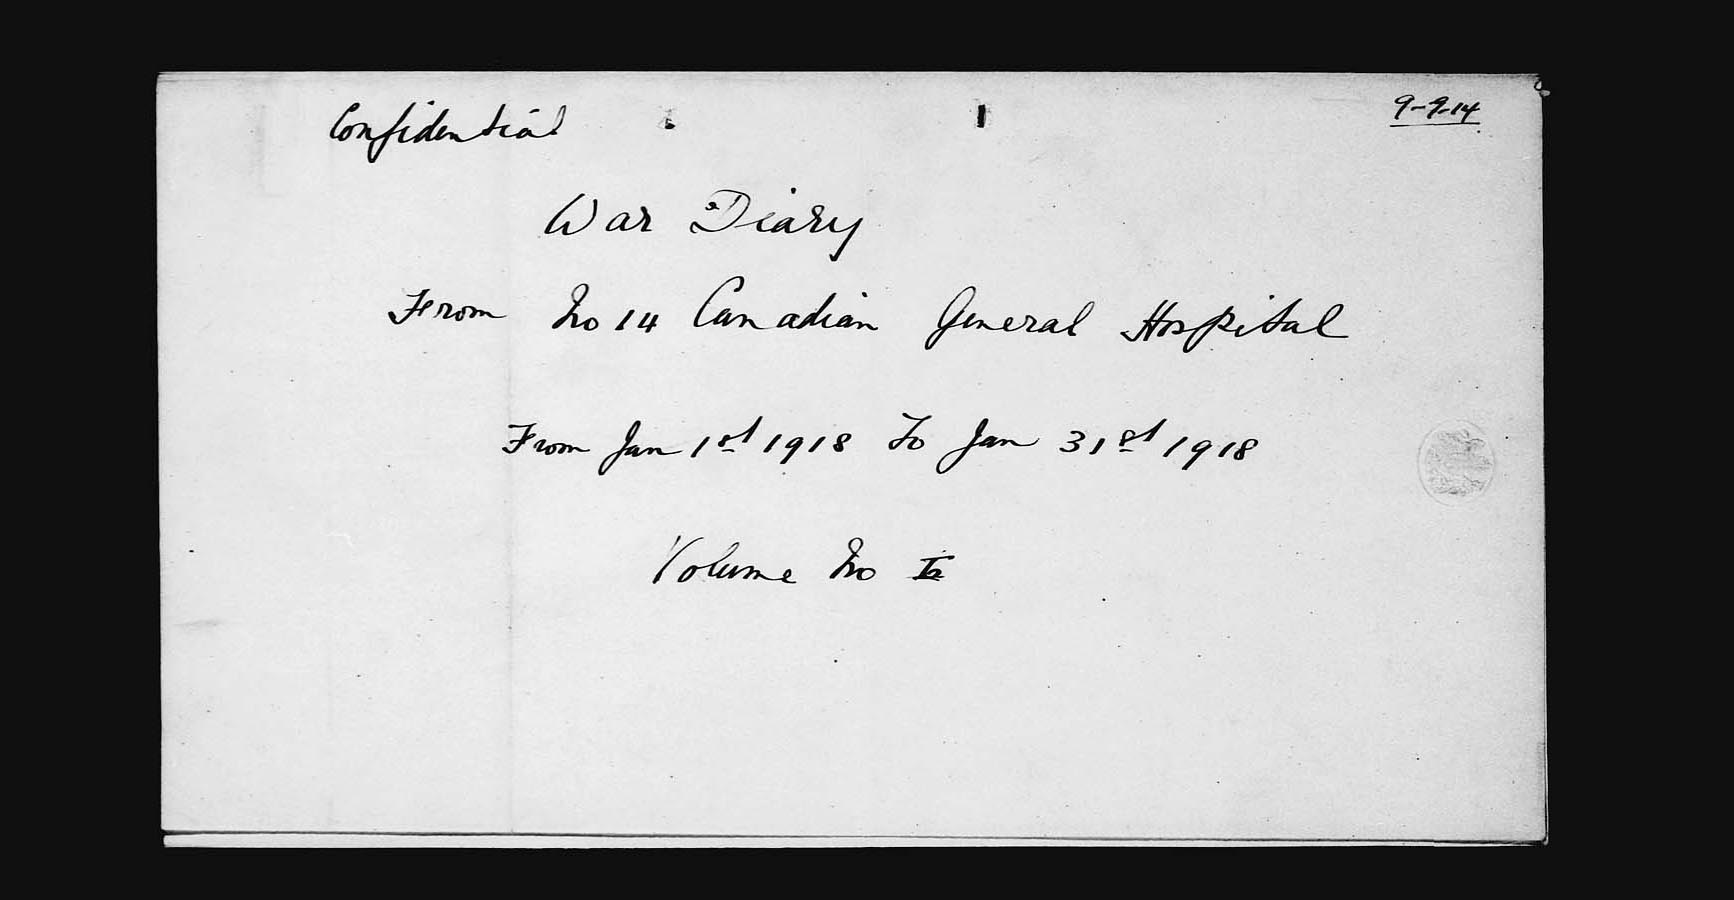 Confidential
9-9-14
War Diary
From No 14 Canadian General Hospital
From Jan 1st 1918 To Jan 31st 1918
Volume No